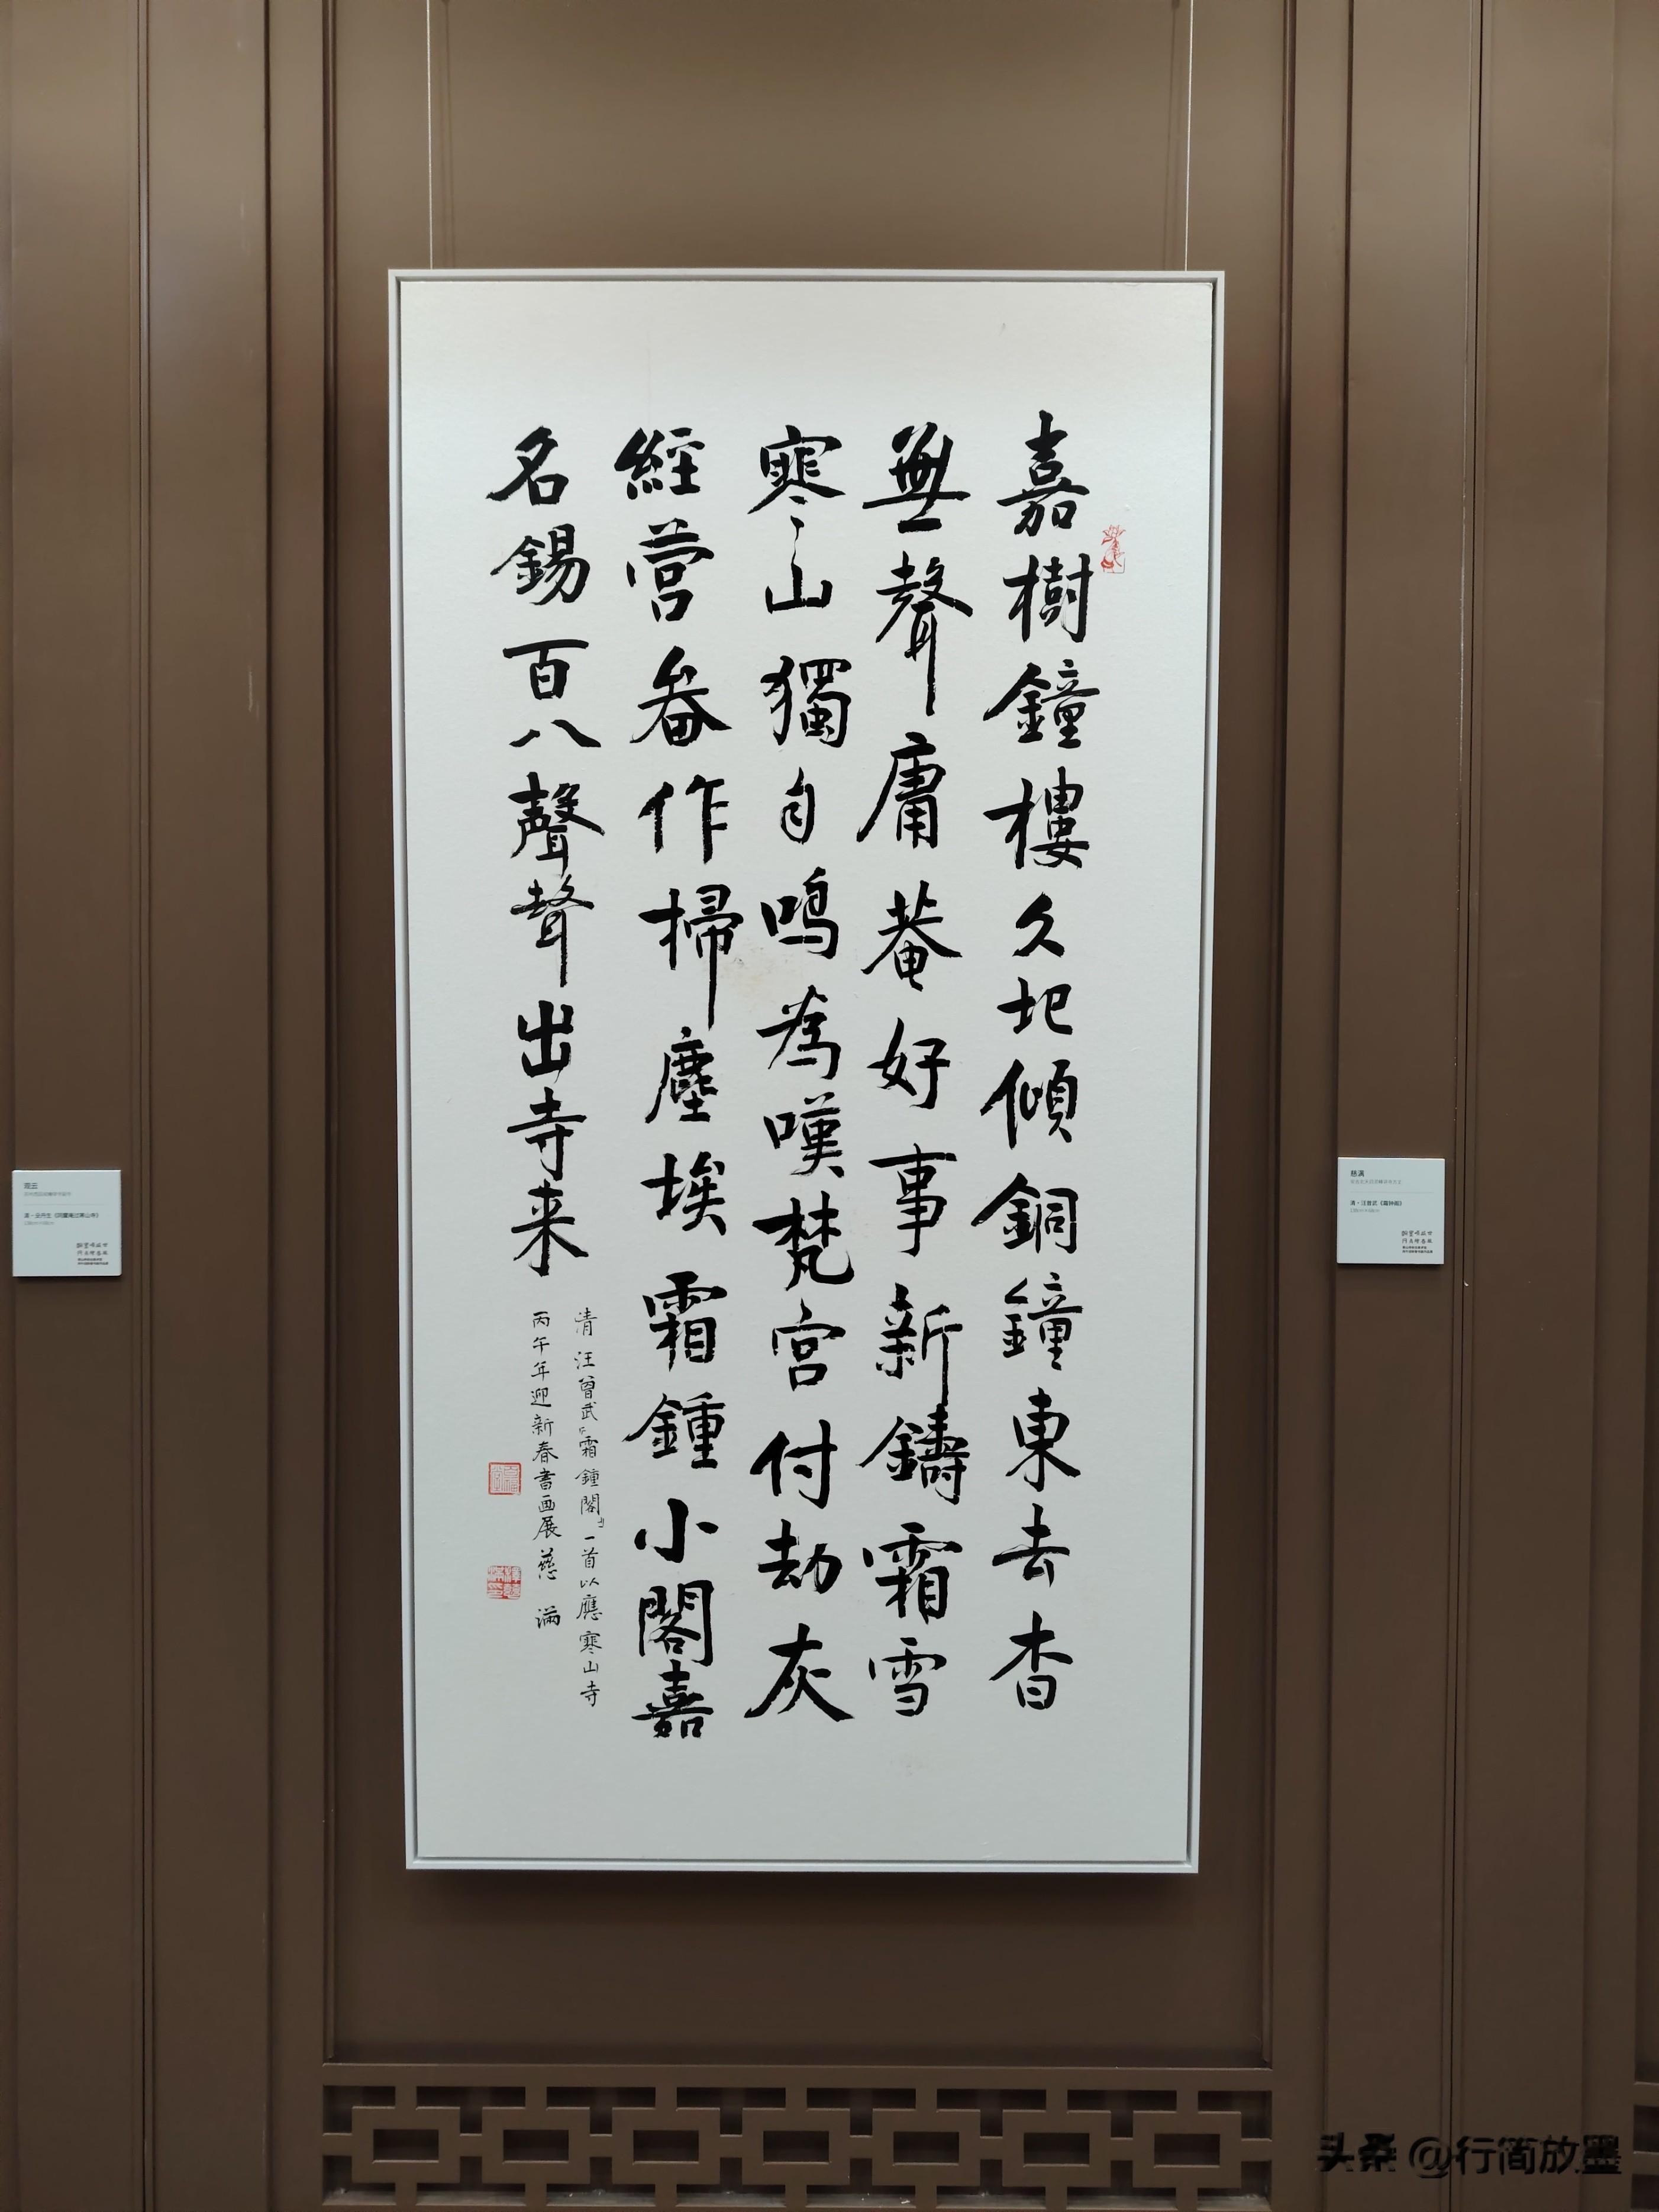 嘉樹鐘樓久圮傾銅鐘東去杳
無聲庸菴好事新鑄霜雪
寒山獨自鳴為嘆梵宮付劫灰
經營畚作掃塵埃霜鍾小閣嘉
名錫百八聲聲出寺来
清 汪曾武「霜鍾閣」一首以應寒山寺
丙午年迎新春書画展 慈滿
慈满
清·汪曾武《霜钟阁》
头条 @行简放墨